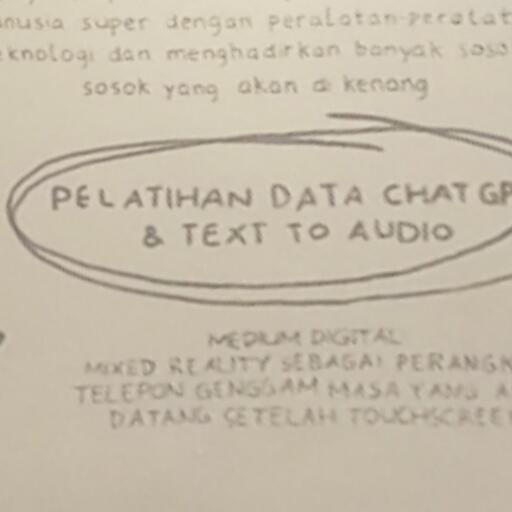 nusia super dengan peralatan-peralat
knologi dan menghadirkan banyak soso
sosok yang akan di kenang
PELATIHAN DATA CHAT GP
& TEXT TO AUDIO
MEDIUM DIGITAL
MIXED REALITY SEBAGAI PERANGK
TELEPON GENGGAM MASA YANG A
DATANG SETELAH TOUCHSCREE